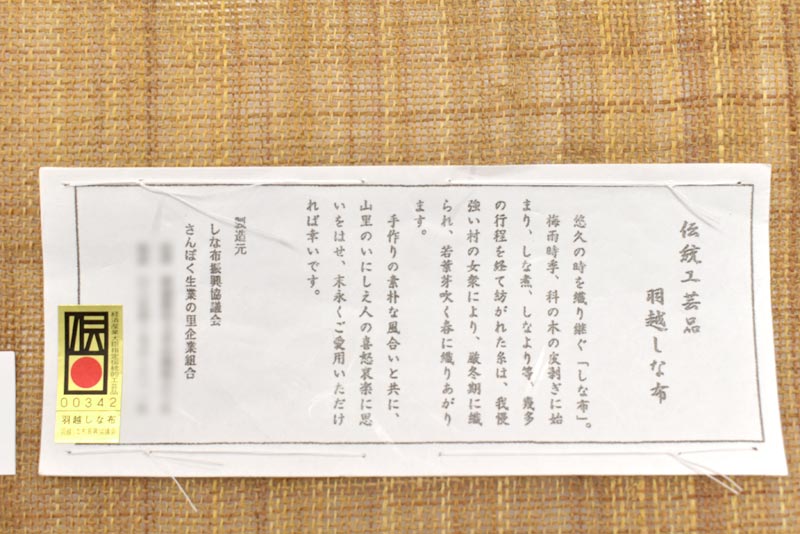 伝統工芸品
羽越しな布
悠久の時を織り継ぐ「しな布」。
梅雨時季、科の木の皮剥ぎに始
まり、しな煮、しなより等、幾多
の行程を経て紡がれた糸は、我慢
強い村の女衆により、厳冬期に織
られ、若葉芽吹く春に織りあがり
ます。
手作りの素朴な風合いと共に、
山里のいにしえ人の喜怒哀楽に思
いをはせ、末永くご愛用いただけ
れば幸いです。
製造元
しな布振興協議会
さんぽく生業の里企業組合
経済産業大臣指定伝統的工芸品
伝
00342
羽越しな布
羽越しな布振興協議会